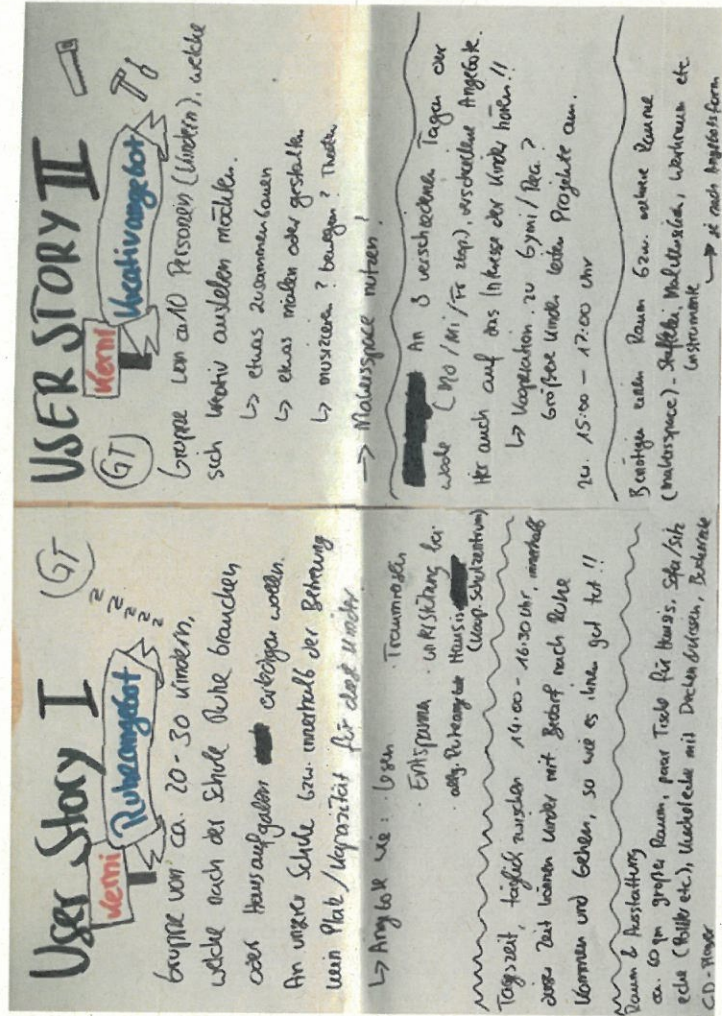 User Story I
GT
Kerni
Ruheangebot
z z z z z
Gruppe von ca. 20-30 Kindern,
welche nach der Schule Ruhe brauchen
oder Hausaufgaben erledigen wollen.
An unserer Schule bzw. innerhalb der Betreuung
kein Platz/Kapazität für diese Kinder
↳ Angebote wie: · Lesen · Traumreisen
· Entspannen · Unterstützung bei
· allg. Ruheangebote Hausis
(Koop. Schulzentrum)
Tageszeit, täglich zwischen 14:00 - 16:30 Uhr, innerhalb
dieser Zeit können Kinder mit Bedarf nach Ruhe
kommen und gehen, so wie es ihnen gut tut!!
Raum & Ausstattung
ca. 60 qm großer Raum, paar Tische für Hausis, Sofa/Sitz
ecke (Polster etc.), Kuschelecke mit Decken & Kissen, Bücherecke
CD-Player
USER STORY II
GT
Kerni
Kreativangebot
Gruppe von ca 10 Personen (Kindern), welche
sich kreativ ausleben möchten.
↳ etwas zusammenbauen
↳ etwas malen oder gestalten
↳ musizieren? bewegen? Theater
→ Makersspace nutzen!
An 3 verschiedenen Tagen der
Woche (Mo/Mi/Fr zbsp.), verschiedene Angebote.
Hier auch auf das Interesse der Kinder hören!!
↳ Kooperation zu Gymi/Rea?
Größere Kinder leiten Projekte an.
zw. 15:00 - 17:00 Uhr
Benötigen einen Raum bzw. mehrere Räume
(makersspace) - Staffelei, Malutensilien, Werkraum etc
Instrumente
→ je nach Angebotsform